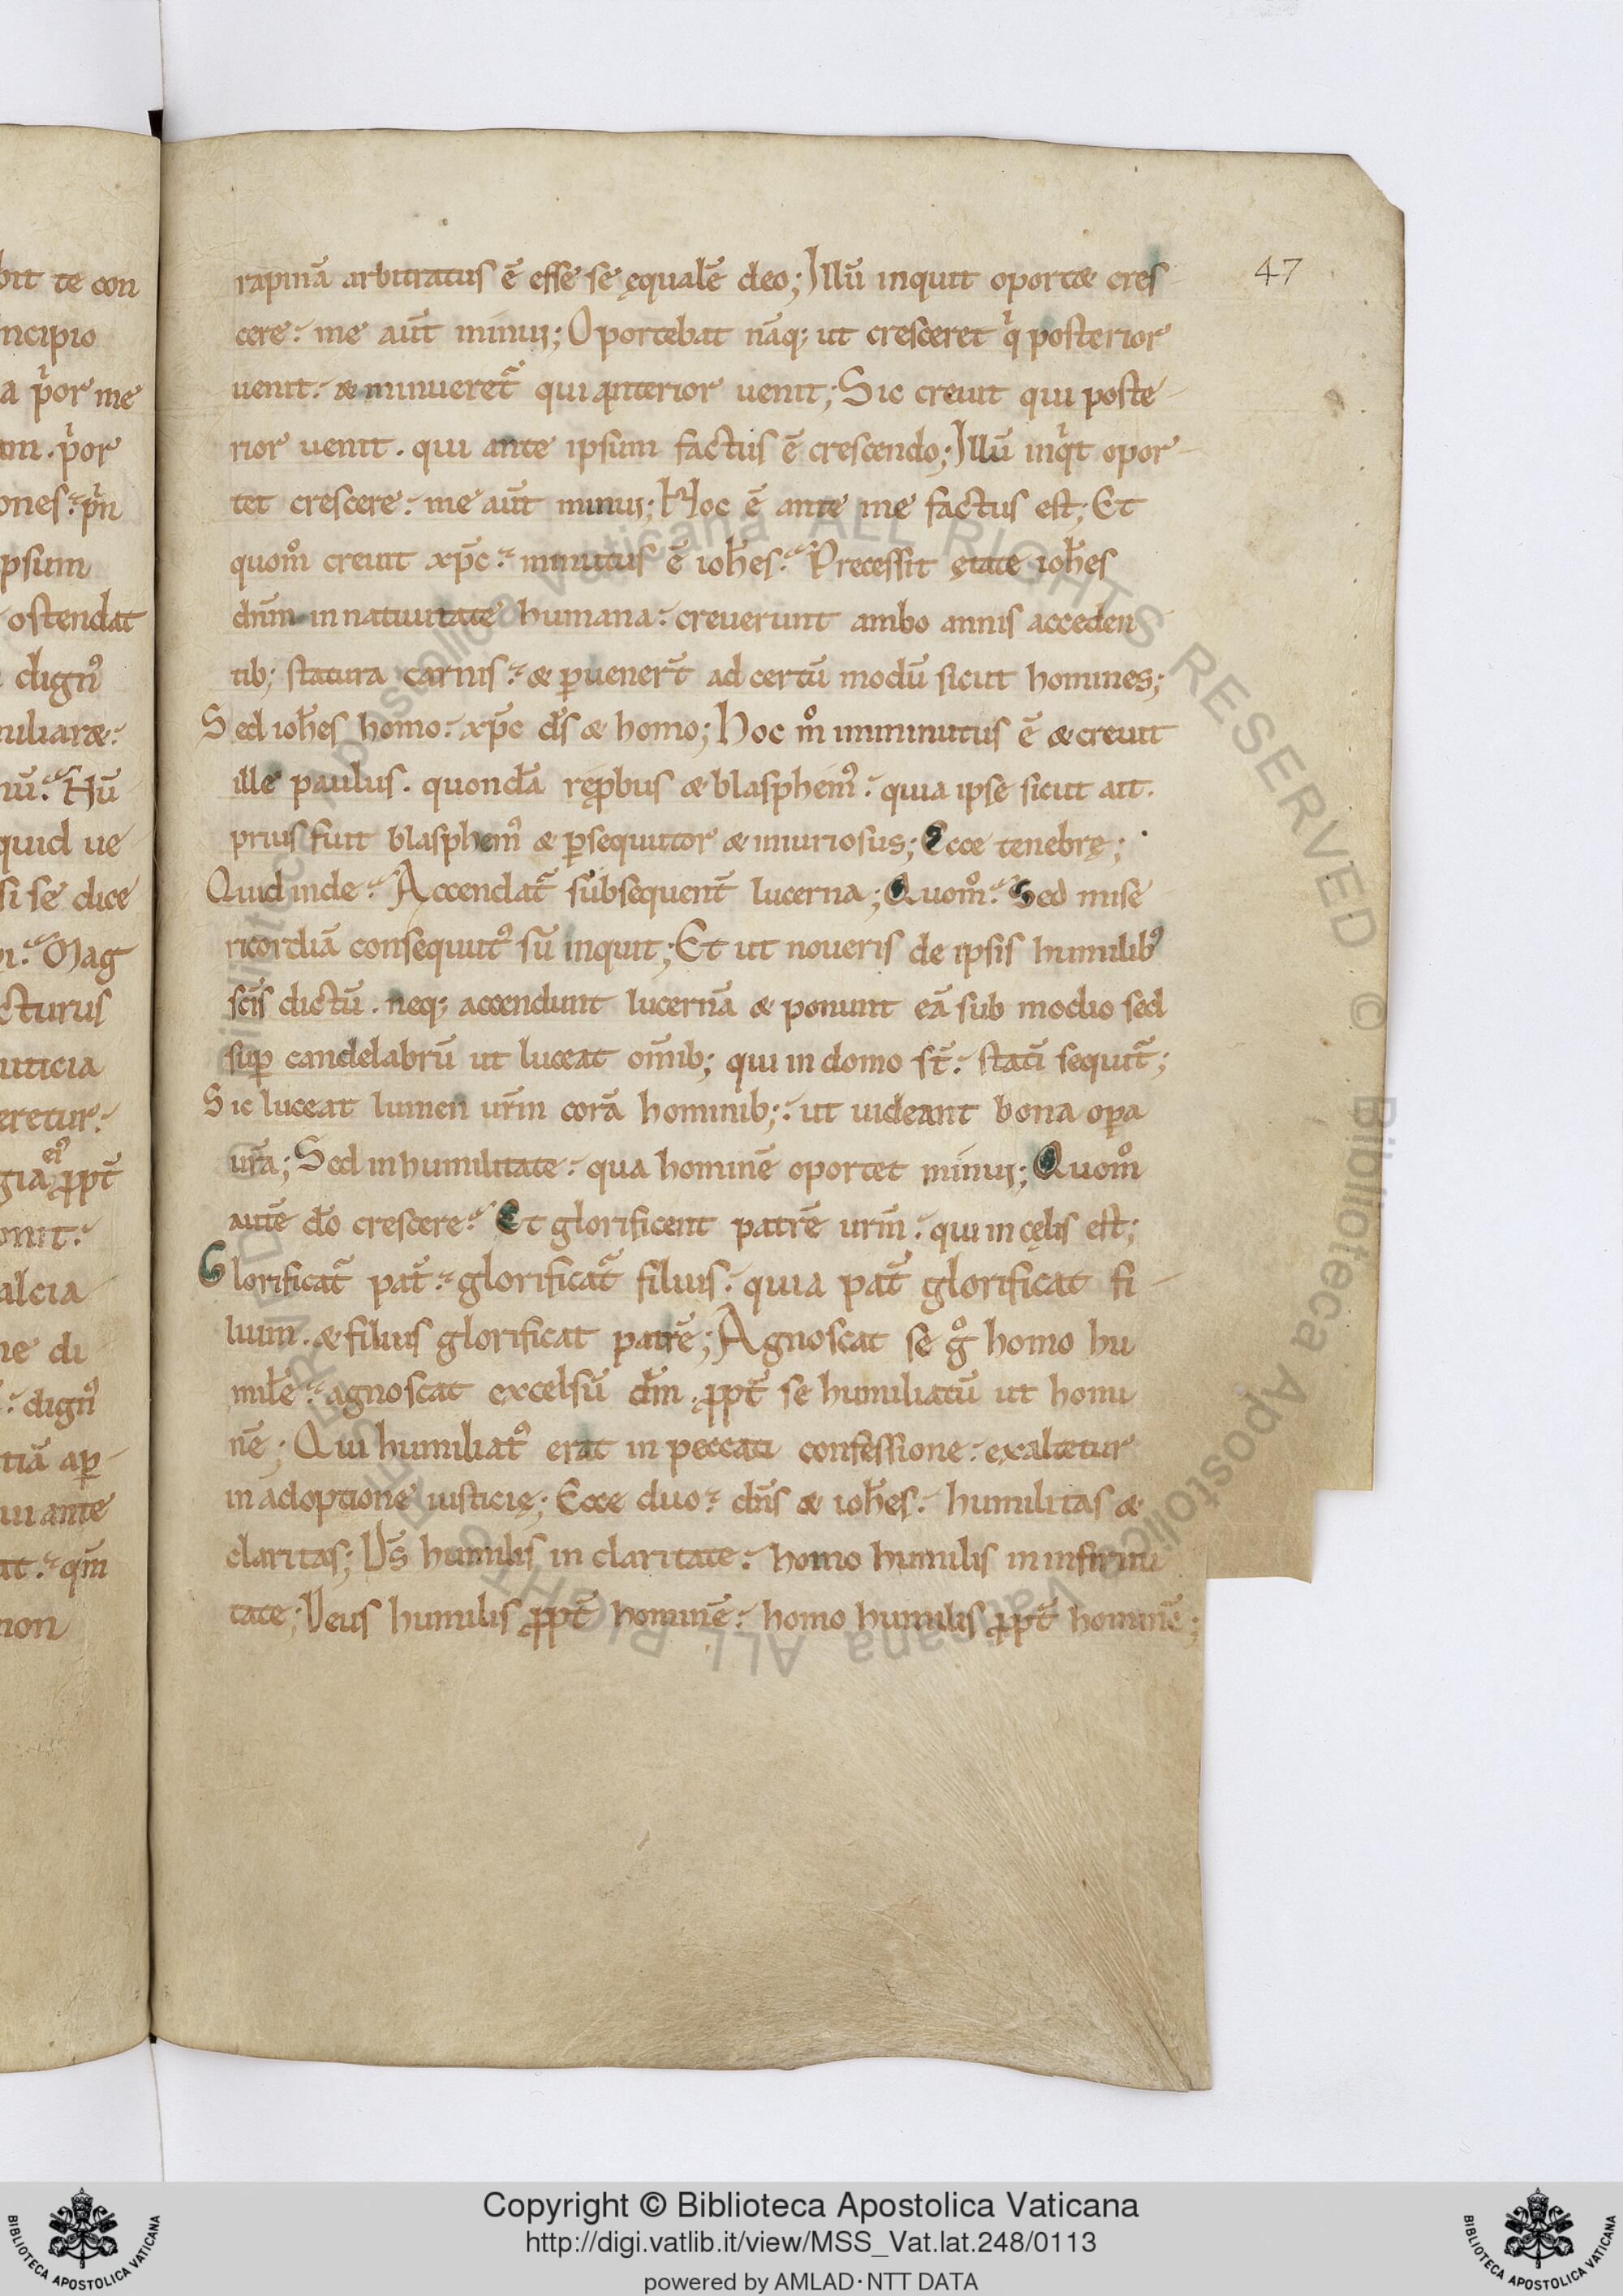 bit te con
ncipio
a p̄or me
m . p̄or
ones
psum
ostendat
dign᾽
miliaræ
Hū
quid ue
si se dice
Mag
cturus
uticia
eretur
gia ei᾽ ꝓpt̄
onit
alcia
ne di
dign᾽
tiā aꝑ
ui ante
at . qm̄
non
47
rapinā arbitratus ē esse se ęqualē deo; Illū inquit oportæ cres
cere . me aūt minui; Oportebat nāq; ut cresceret qͥ posterior
uenit . & minueret᷑ qui anterior uenit; Sic creuit qui poste
rior uenit . qui ante ipsum factus ē crescendo; Illū inqͥt opor
tet crescere . me aūt minui; Hoc ē ante me factus est; Et
quom̊ creuit xp̄c . minutus ē ioh̄es . Precessit ętate ioh̄es
dn̄m in natiuitate humana . creuerunt ambo annis acceden
tib; statura carnis . & ꝑuenert̄ ad certū modū sicut homines;
Sed ioh̄es homo . xp̄c d̄s & homo; Hoc m̊ imminutus ē & creuit
ille paulus . quondā reꝓbus & blasphem᾽ . quia ipse sicut ait .
prius fuit blasphem᾽ & ꝑsequutor & iniuriosus; Ecce tenebrę;
Quid inde . Accendat᷑ subsequent̄ lucerna; Quom̊ . Sed mise
ricordiā consequut᾽ sū inquit; Et ut noueris de ipsis humilib᾽
sc̄is dictū . neq; accendunt lucernā & ponunt eā sub modio sed
suꝑ candelabrū ut luceat om̄ib; qui in domo st̄ . statī sequit᷑;
Sic luceat lumen ur̄m corā hominib; . ut uideant bona oꝑa
ur̄a; Sed in humilitate . qua hominē oportet minui; Quom̊
autē dō crescere . Et glorificent patrē urm̄ . qui in cęlis est;
Glorificat᷑ pat̄ . glorificat᷑ filius . quia pat̄ glorificat fi
lium . & filius glorificat patrē; Agnoscat se g̊ homo hu
milē . agnoscat excelsū dm̄ . ꝓpt̄ se humiliatū ut homi
nē; Qui humiliat᾽ erat in peccati confessione . exaltetur
in adoptione iusticię; Ecce duo . dn̄s & ioh̄es . humilitas &
claritas; D̄s humilis in claritate . homo humilis in infirmi
tate; Deus humilis ꝓpt̄ hominē . homo humilis ꝓpt̄ hominē;
Copyright © Biblioteca Apostolica Vaticana
http://digi.vatlib.it/view/MSS_Vat.lat.248/0113
powered by AMLAD·NTT DATA
BIBLIOTECA APOSTOLICA VATICANA
BIBLIOTECA APOSTOLICA VATICANA